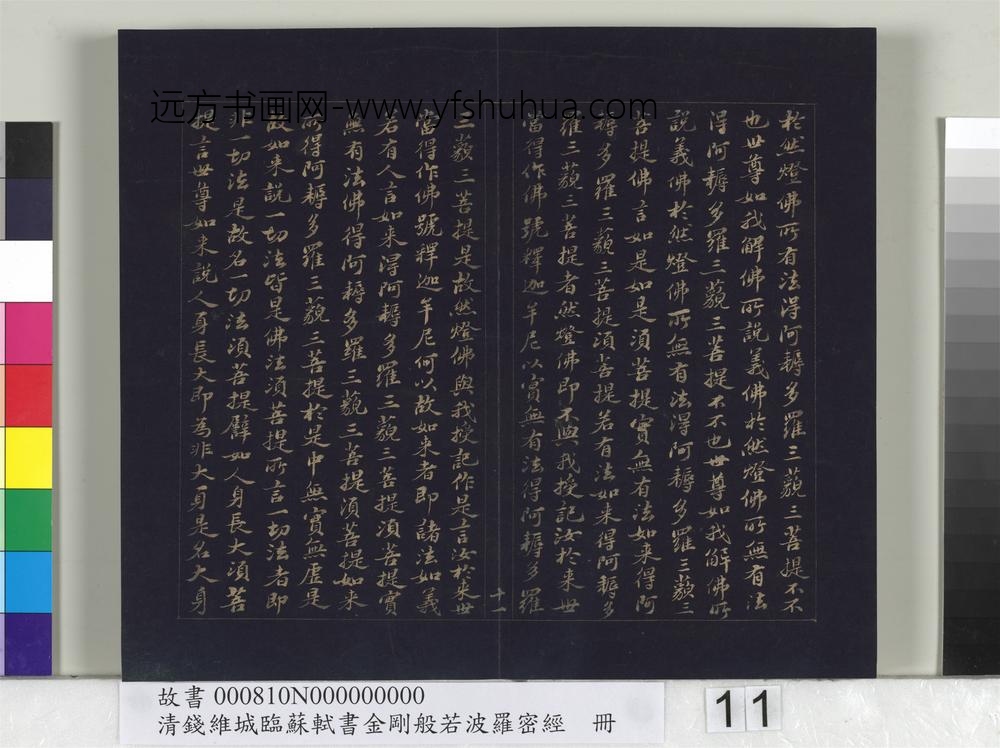 远方书画网-www.yfshuhua.com
於然燈佛所有法得阿耨多羅三藐三菩提不不
也世尊如我解佛所說義佛於然燈佛所無有法
得阿耨多羅三藐三菩提不不也世尊如我解佛所
說義佛於然燈佛所無有法得阿耨多羅三藐三
菩提佛言如是如是須菩提實無有法如來得阿
耨多羅三藐三菩提須菩提若有法如來得阿耨多
羅三藐三菩提者然燈佛即不與我授記汝於來世
當得作佛號釋迦牟尼以實無有法得阿耨多羅
十一
三藐三菩提是故然燈佛與我授記作是言汝於來世
當得作佛號釋迦牟尼何以故如來者即諸法如義
若有人言如來得阿耨多羅三藐三菩提須菩提實
無有法佛得阿耨多羅三藐三菩提須菩提如來
所得阿耨多羅三藐三菩提於是中無實無虛是
故如來說一切法皆是佛法須菩提所言一切法者即
非一切法是故名一切法須菩提譬如人身長大須菩
提言世尊如來說人身長大即為非大身是名大身
故書 000810N000000000
清錢維城臨蘇軾書金剛般若波羅密經 冊
11